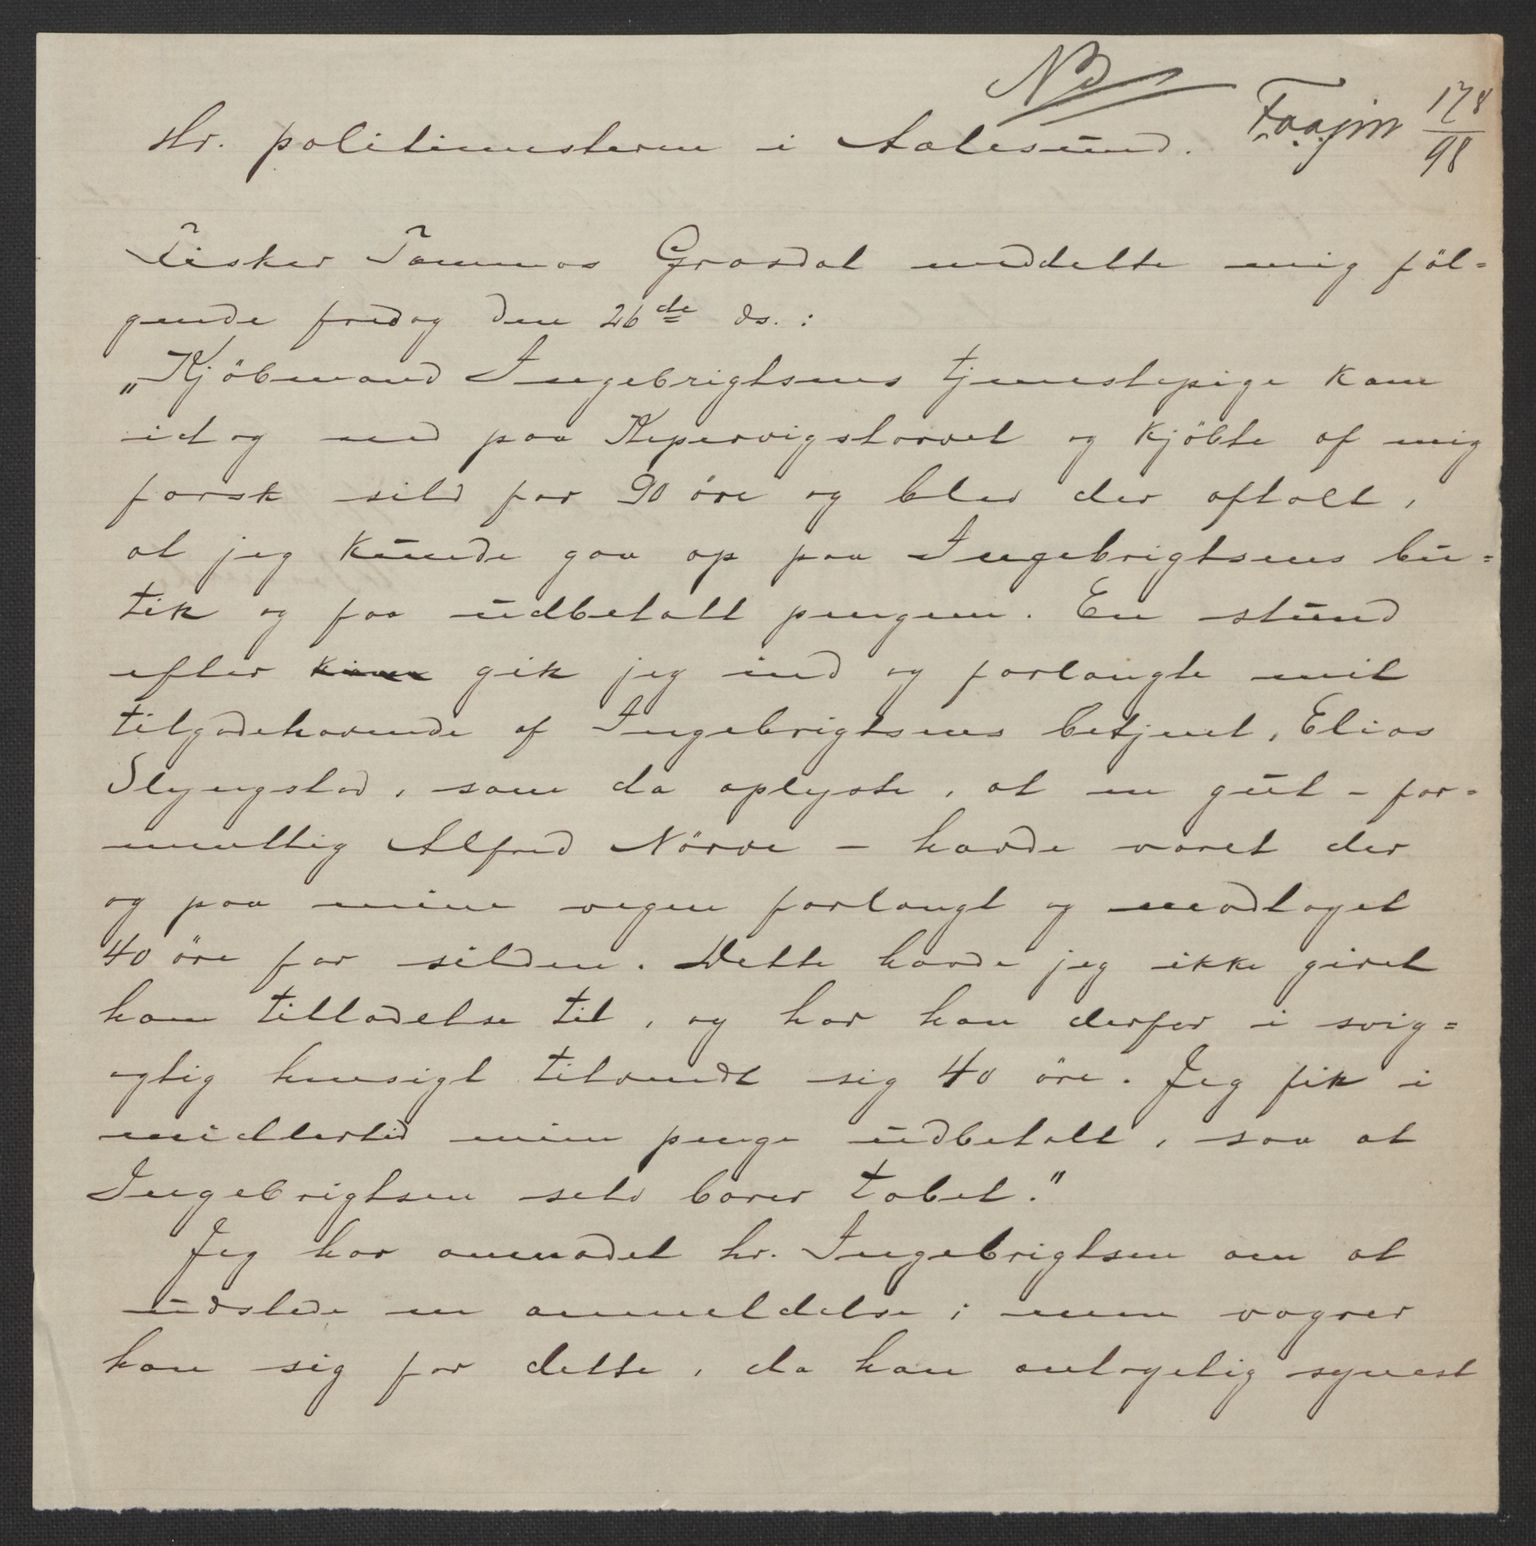 Nd
Hr. politimesteren i Aalesund. 178/98
Fisker Tommas Grasdal meddelte mig föl-
gende fredag den 26de ds.:
„Kjöbmand Ingebrigtsens tjenestepige kom
idag ned paa Kipervigstorvet og kjöbte af mig
fersk sild for 90 öre og blev der aftalt,
at jeg kunde gaa op paa Ingebrigtsens bu-
tik og faa udbetalt pengene. En stund
efter kom gik jeg ind og forlangte mit
tilgodehavende af Ingebrigtsens betjent, Elias
Slyngstad, som da oplyste, at en gut – for-
mentlig Alfred Nörve – havde været der
og paa mine vegne forlangt og modtaget
40 öre for silden. Dette havde jeg ikke givet
ham tilladelse til, og har han derfor i svig-
agtig hensigt tilvendt sig 40 öre. Jeg fik i
midlertid mine penge udbetalt, saa at
Ingebrigtsen selv bærer tabet."
Jeg har anmodet hr. Ingebrigtsen om at
udstede en anmeldelse; men vægrer
han sig for dette, da han antagelig synest